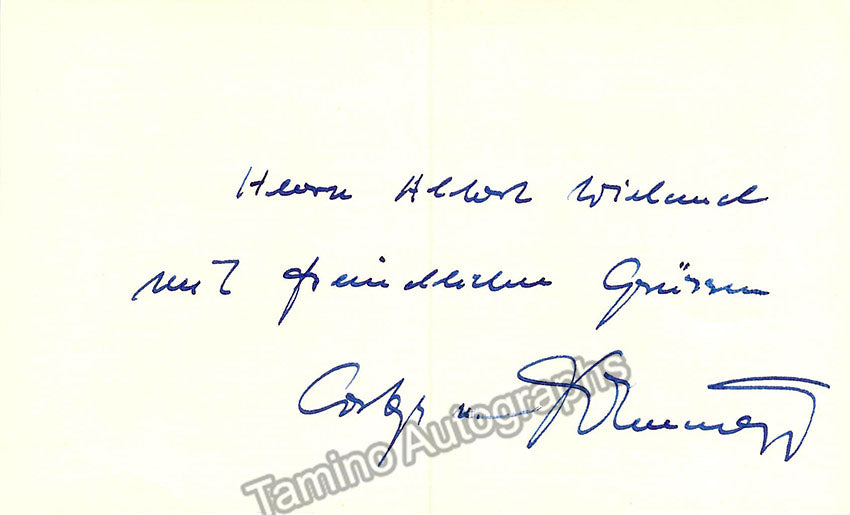 Herrn Albert Wieland
mit freundlichen Grüssen
Tamino Autographs